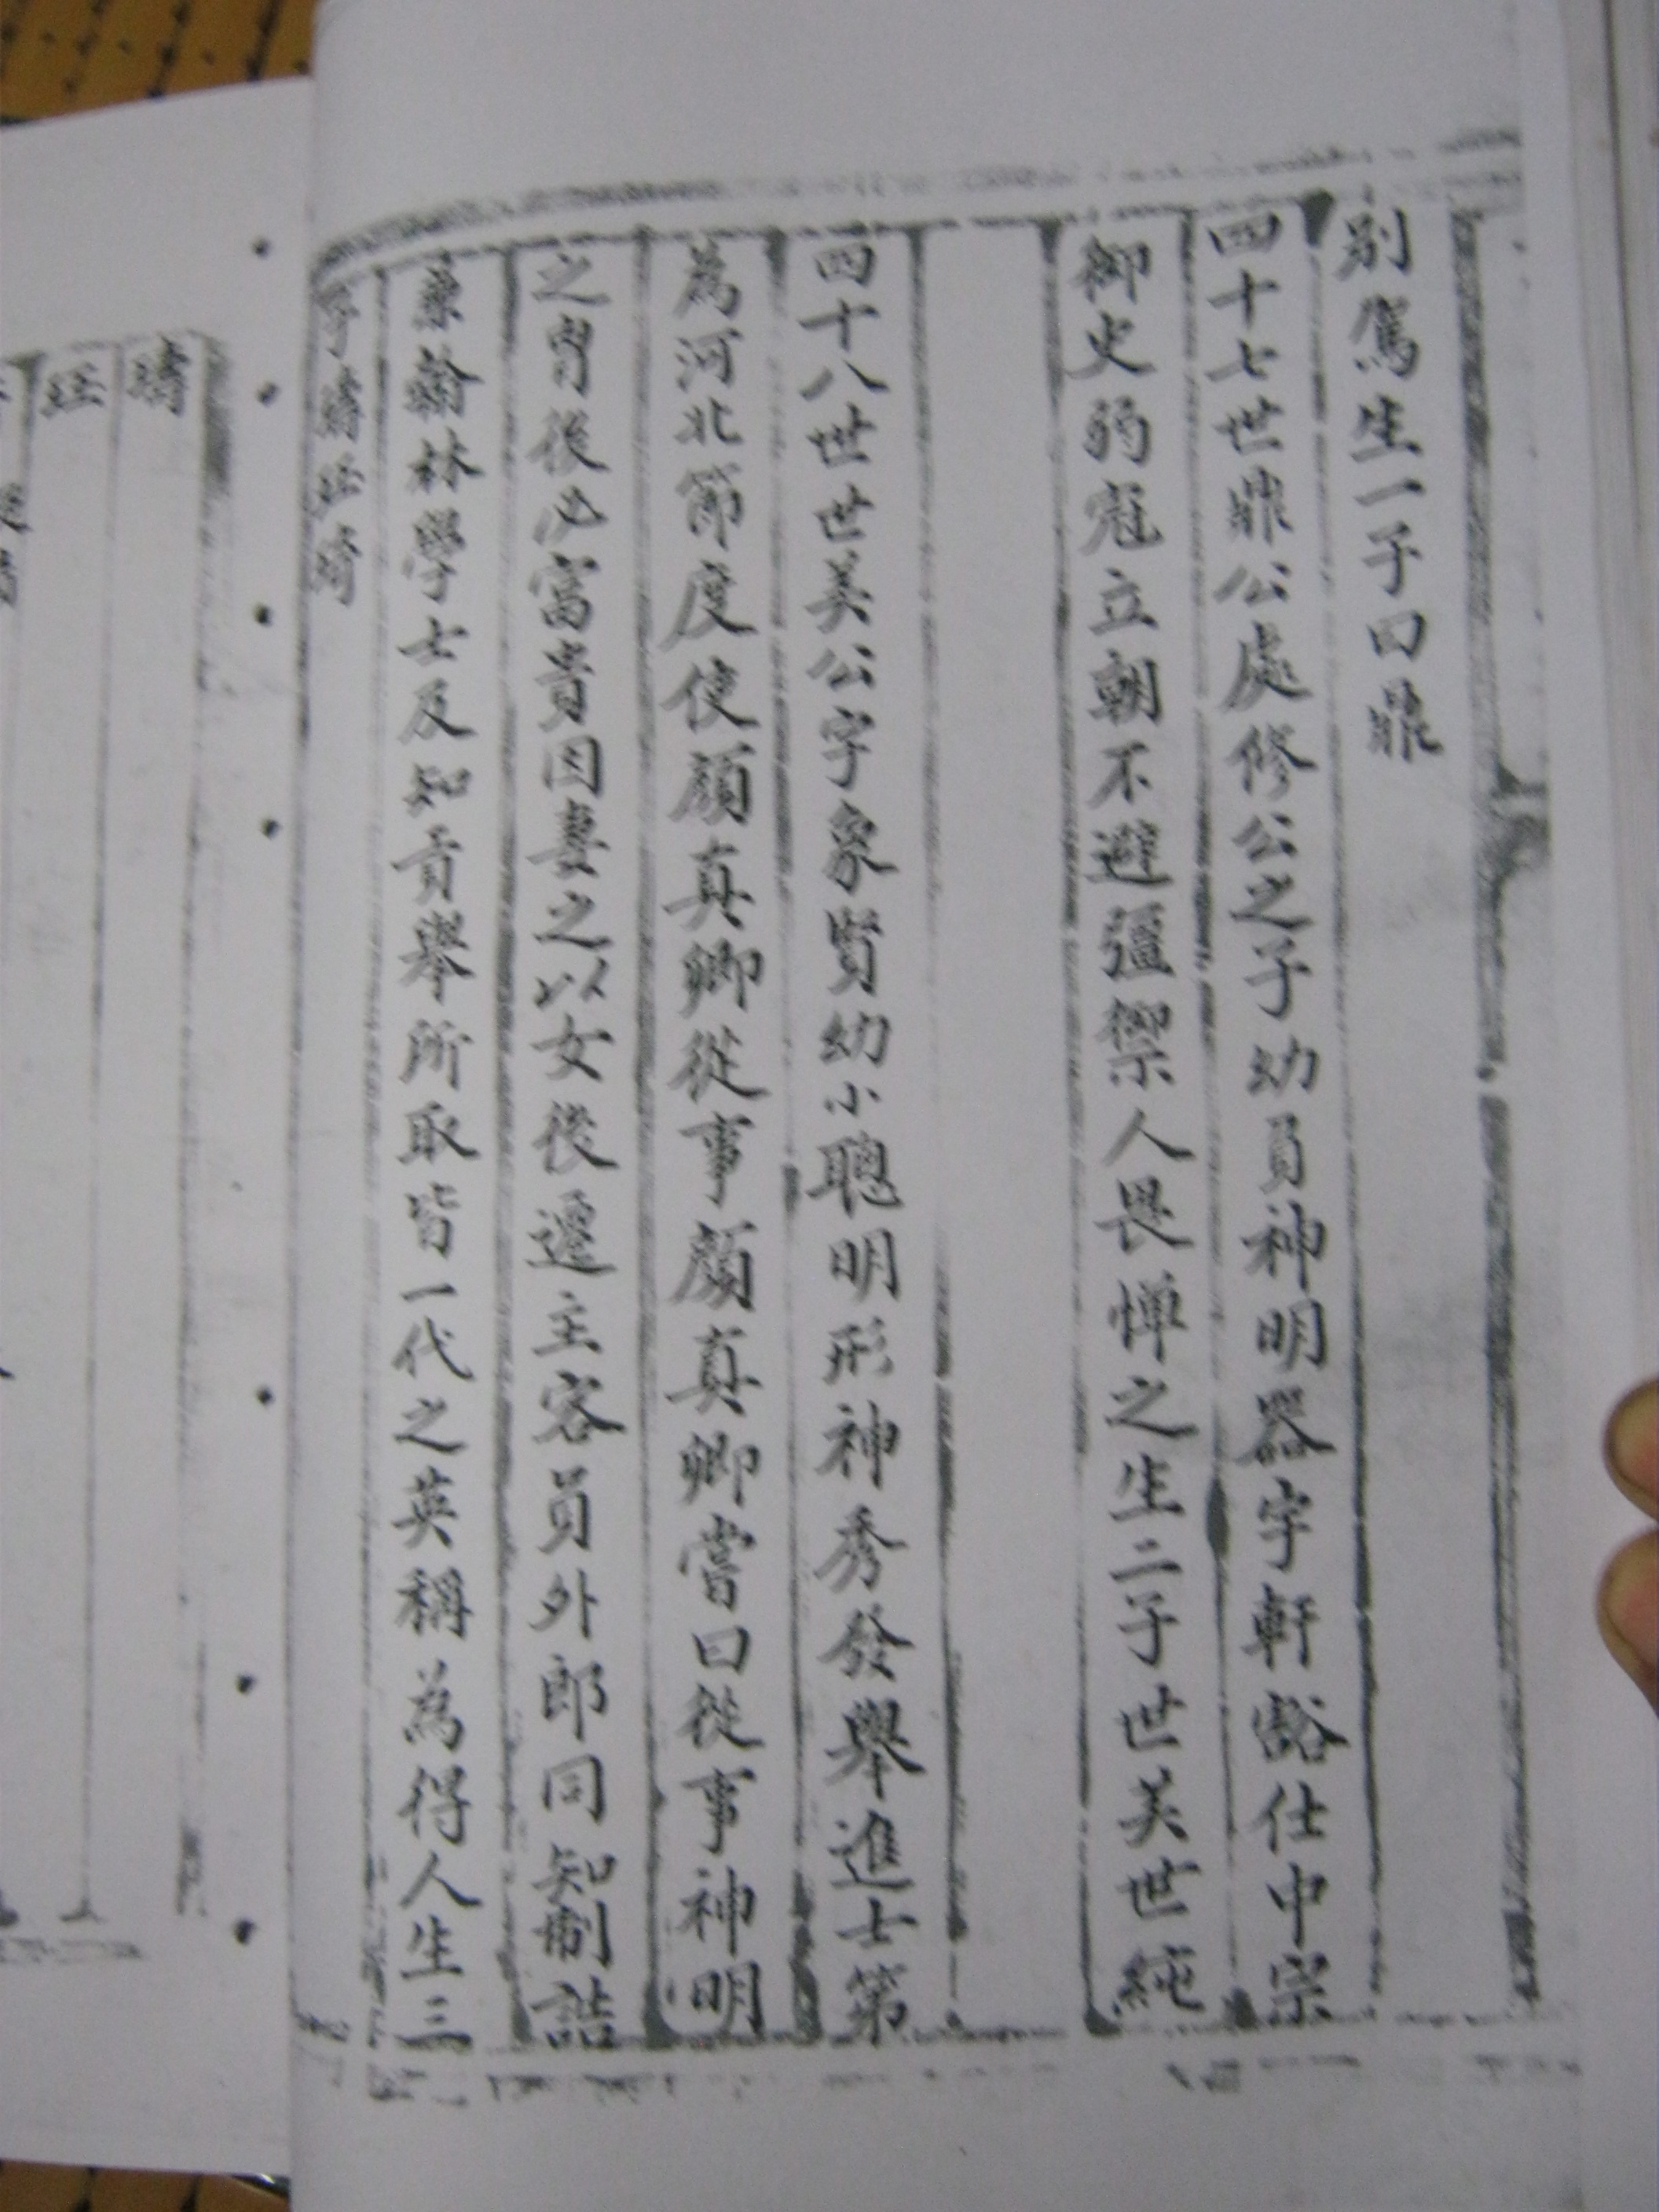 別駕生一子曰鼎
四十七世鼎公處修公之子幼員神明器宇軒豁仕中宗
御史弱冠立朝不避彊禦人畏憚之生二子世美世純
四十八世世美公字象賢幼小聰明形神秀發舉進士第
為河北節度使顏真卿從事顏真卿嘗曰從事神明
之胄後必富貴因妻之以女後遷主客員外郎同知制誥
兼翰林學士及知貢舉所取皆一代之英稱為得人生三
子